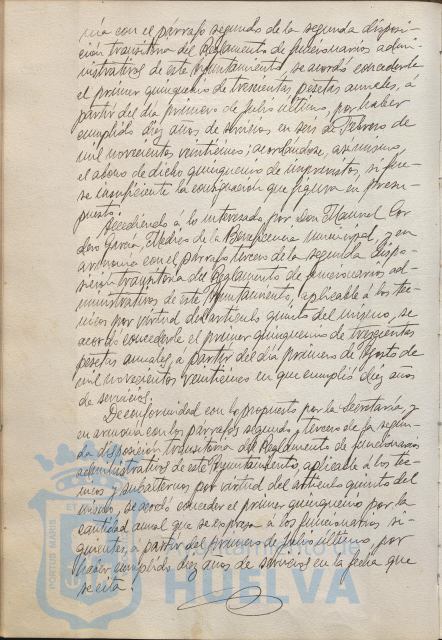 nía con el párrafo segundo de la segunda disposi-
ción transitoria del Reglamento de funcionarios admi-
nistrativos de este Ayuntamiento, se acordó concederle
el primer quinquenio de trescientas pesetas anuales, á
partir del día primero de Julio último, por haber
cumplido diez años de servicios en seis de Febrero de
mil novecientos veinticinco; acordándose, asimismo,
el abono de dicho quinquenio de imprevistos, si fue-
se insuficiente la consignación que figura en presu-
puesto.
Accediendo á lo interesado por Don Manuel Cor-
dero García, Médico de la Beneficencia municipal, y en
armonía con el párrafo tercero de la segunda dispo-
sición transitoria del Reglamento de funcionarios ad-
ministrativos de este Ayuntamiento, aplicable á los téc-
nicos por virtud del artículo quinto del mismo, se
acordó concederle el primer quinquenio de trescientas
pesetas anuales, á partir del día primero de Agosto de
mil novecientos veinticinco en que cumplió diez años
de servicios.
De conformidad con lo propuesto por la Secretaría, y
en armonía con los párrafos segundo y tercero de la segun-
da disposición transitoria del Reglamento de funcionarios
administrativos de este Ayuntamiento, aplicable á los téc-
nicos y subalternos por virtud del artículo quinto del
mismo, se acordó conceder el primer quinquenio por la
cantidad anual que se expresa á los funcionarios si-
guientes, á partir del primero de Julio último, por
haber cumplido diez años de servicios en la fecha que
se cita.
PORTUS MARIS ET
Ayuntamiento de
HUELVA